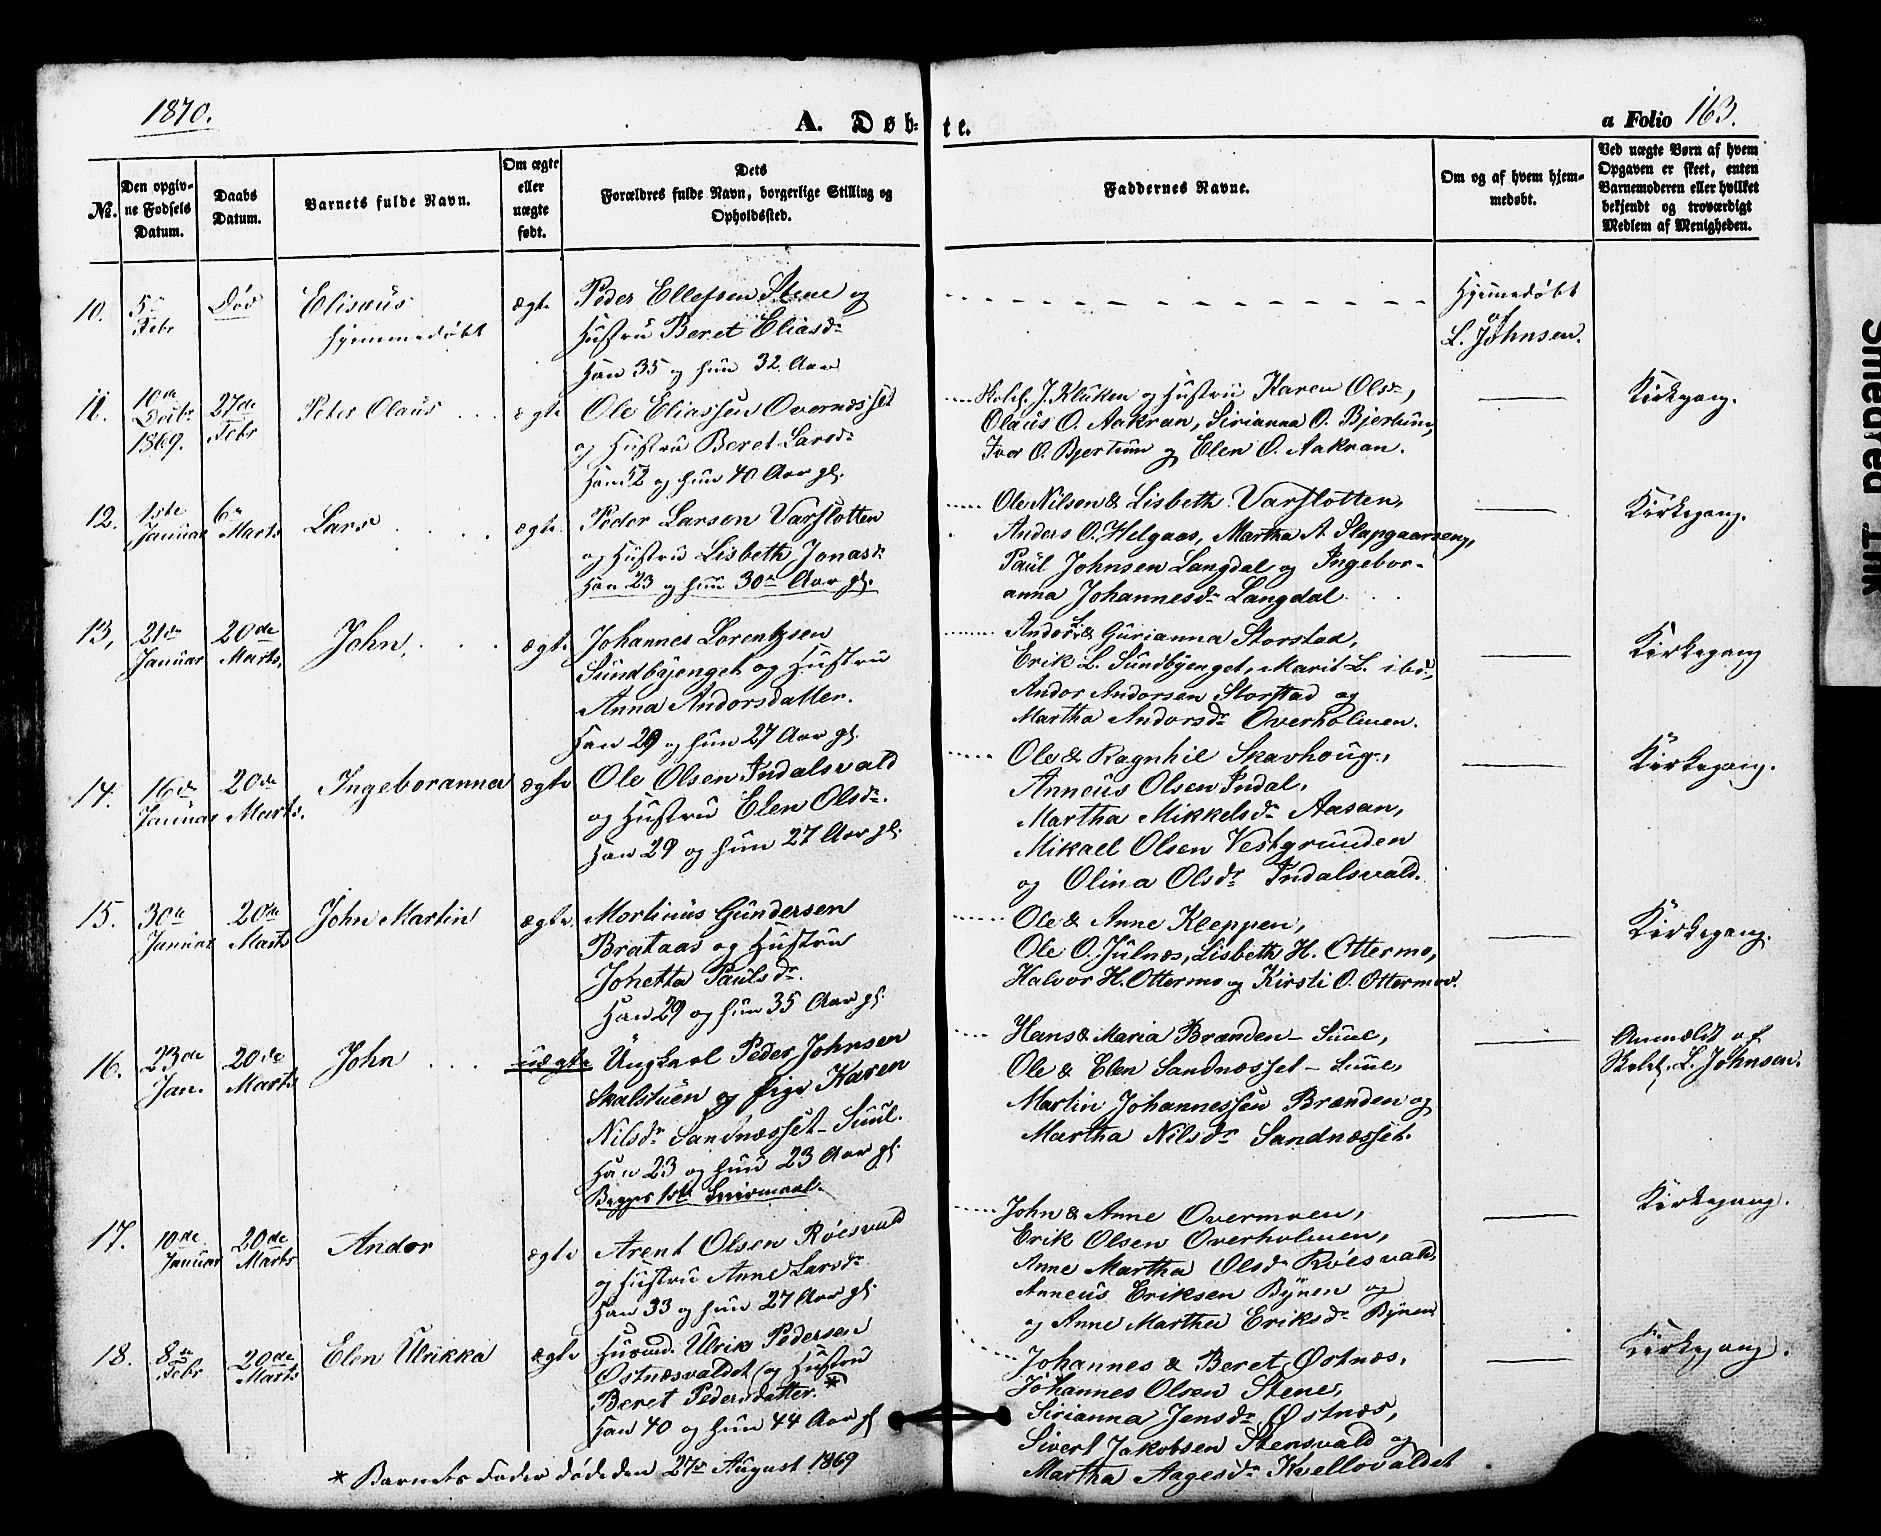 1870.
A. Døb-
te.
a Folio 163.
No.
Den opgiv-
ne Fødsels
Datum.
Daabs
Datum.
Barnets fulde Navn.
Om ægte
eller
uægte
født.
Dets
Forældres fulde Navn, borgerlige Stilling og
Opholdssted.
Faddernes Navne.
Om og af hvem hjem-
medøbt.
Ved uægte Børn af hvem
Opgaven er skeet, enten
Barnemoderen eller hvilket
bekjendt og troværdigt
Medlem af Menigheden.
10.
5te
Febr
Død
Elisæus
hjemmedøbt
ægte
Peder Ellefsen Stene og
Hustru Beret Eliasdr
Han 35 og hun 32 Aar
Hjemmedøbt
af
L. Johnsen.
11.
10de
Decbr
1869.
27de
Febr
Peter Olaus
ægte
Ole Eliassen Overnesset
og Hustru Beret Larsdr
Han 52 og hun 40 Aar gl.
J. Kluken og Hustru Karen Olsdr,
Olaus O. Aakran, Sirianna O. Bjertum,
Iver O. Bjertum og Elen O. Aakran.
Kirkegang.
12.
1ste
Januar
6te
Marts
Lars
ægte
Peder Larsen Varslotten
og Hustru Lisbeth Jonasdr
Han 23 og hun 30te Aar gl.
Ole Nilsen & Lisbeth Varslotten,
Anders O. Helgaas, Martha A. Slapgaardseng,
Paul Johnsen Langdal og Ingebor-
anna Johannesdr Langdal
Kirkegang.
13,
21de
Januar
20de
Marts,
John,
ægte
Johannes Lorentzsen
Sundbyenget og Hustru
Anna Andorsdatter.
Han 29 og hun 27 Aar gl.
Andor L. & Gurianna Storstad,
Erik L. Sundbyenget, Marit L. ibd.,
Andor Andorsen Storstad og
Martha Andorsdr Overholmen.
Kirkegang
14.
16de
Januar
20de
Marts.
Ingeboranna
ægte
Ole Olsen Indalsvald
og Hustru Elen Olsdr.
Han 29 og hun 27 Aar gl.
Ole & Ragnhil Skavhoug,
Anneus Olsen Indal,
Martha Mikkelsdr Aasan,
Mikael Olsen Vestgrunden
og Olina Olsdr Indalsvald.
Kirkegang.
15.
30te
Januar
20de
Marts
John Martin
ægte
Mortinus Gundersen
Brataas og Hustru
Jonetta Paulsdr.
Han 29 og hun 35 Aar gl.
Ole & Anne Kleppen,
Ole O. Julnes, Lisbeth H. Ottermo,
Halvor H. Ottermo og Kirsti O. Ottermo.
Kirkegang.
16.
23de
Jan.
20de
Marts
John
uægte
Ungkarl Peder Johnsen
Skalstuen og Pige Karen
Nilsdr Sandnæsset-Suul.
Han 23 og hun 23 Aar gl.
Begges 1ste Leiermaal.
Hans & Maria Brænden-Suul,
Ole & Elen Sandnæsset-Suul,
Martin Johannessen Brænden og
Martha Nilsdr Sandnæsset.
Anmeldt af
L. Johnsen.
17.
10de
Januar
20de
Marts
Andor
ægte
Arent Olsen Røesvald
og Hustru Anne Larsdr
Han 33 og hun 27 Aar gl.
John & Anne Overmoen,
Erik Olsen Overholmen,
Anne Martha Olsdr Røesvald,
Anneus Eriksen Bynen og
og Anne Martha Eriksdr Bynen
Kirkegang.
18.
8de
Febr
20de
Marts
Elen Ulrikka
ægte
Husmd. Ulrik Pedersen
Østnæsvaldet og Hustru
Beret Pedersdatter *
Han 40 og hun 44 Aar gl
Johannes & Beret Østnæs,
Johannes Olsen Stene,
Sirianna Jensdr Østnæs,
Sivert Jakobsen Stensvald og
Martha Aagesdr Kvellovaldet
Kirkegang.
* Barnets Fader døde den 27de August 1869